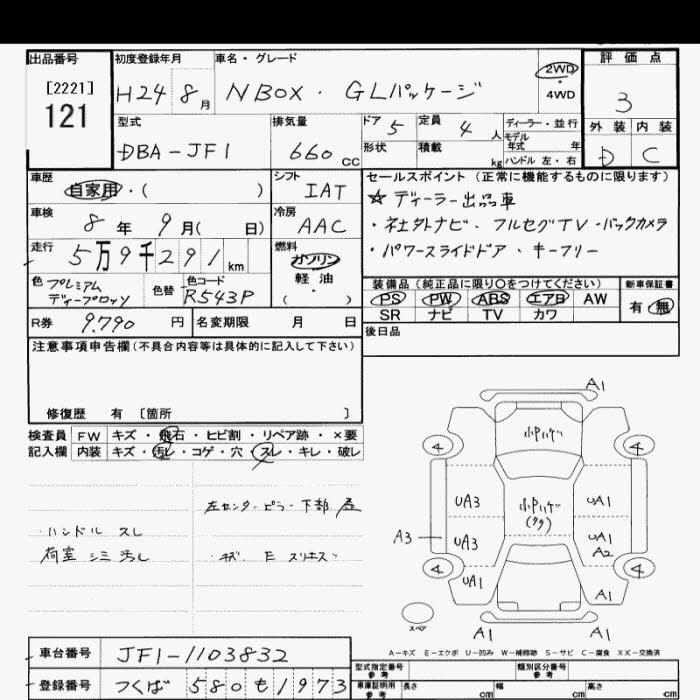 出品番号 初度登録年月 車名・グレード 2WD ・ 4WD 評価点
[2221] 121 H24 8月 NBOX・GLパッケージ 3
型式 排気量 ドア 5 定員 4人 ディーラー・並行 外装 内装
DBA-JF1 660cc 形状 積載 kg モデル年式 年 ハンドル 左・右 D C
車歴 自家用・( ) シフト IAT セールスポイント (正常に機能するものに限ります)
☆ ディーラー出品車
車検 8年 9月( 日) 冷房 AAC ・社外ナビ・フルセグTV・バックカメラ
走行 5万9千291km 燃料 ガソリン 軽油 ・( ) ・パワースライドドア、キーフリー
色 プレミアムディープロッソ 色替 色コード R543P
装備品 (純正品に限り○をつけてください) 新車保証書
PS PW ABS エアB AW 有・無
SR ナビ TV カワ
R券 9.790円 名変期限 月 日 後日品
注意事項申告欄 (不具合内容等は具体的に記入して下さい)
修復歴 有 〔箇所 〕
検査員 FW キズ・飛石・ヒビ割・リペア跡・×要
記入欄 内装 キズ・汚レ・コゲ・穴・スレ・キレ・破レ
左センターピラー下部
・ハンドル スレ
荷室 シミ 汚レ ・キズ、E
A1
小Pハゲ
4 4
UA3 小Pハゲ UA1
A3 UA3 UA1
A2
4 UA1 A1 4
スペア A1 A1
A-キズ E-エクボ U-凹み W-補修跡 S-サビ C-腐食 XX-交換済
車台番号 JF1-1103832
型式指定番号 参考 類別区分番号 参考
登録番号 つくば 580 も 1973
車庫証明用 参考 長さ cm 幅 cm 高さ cm